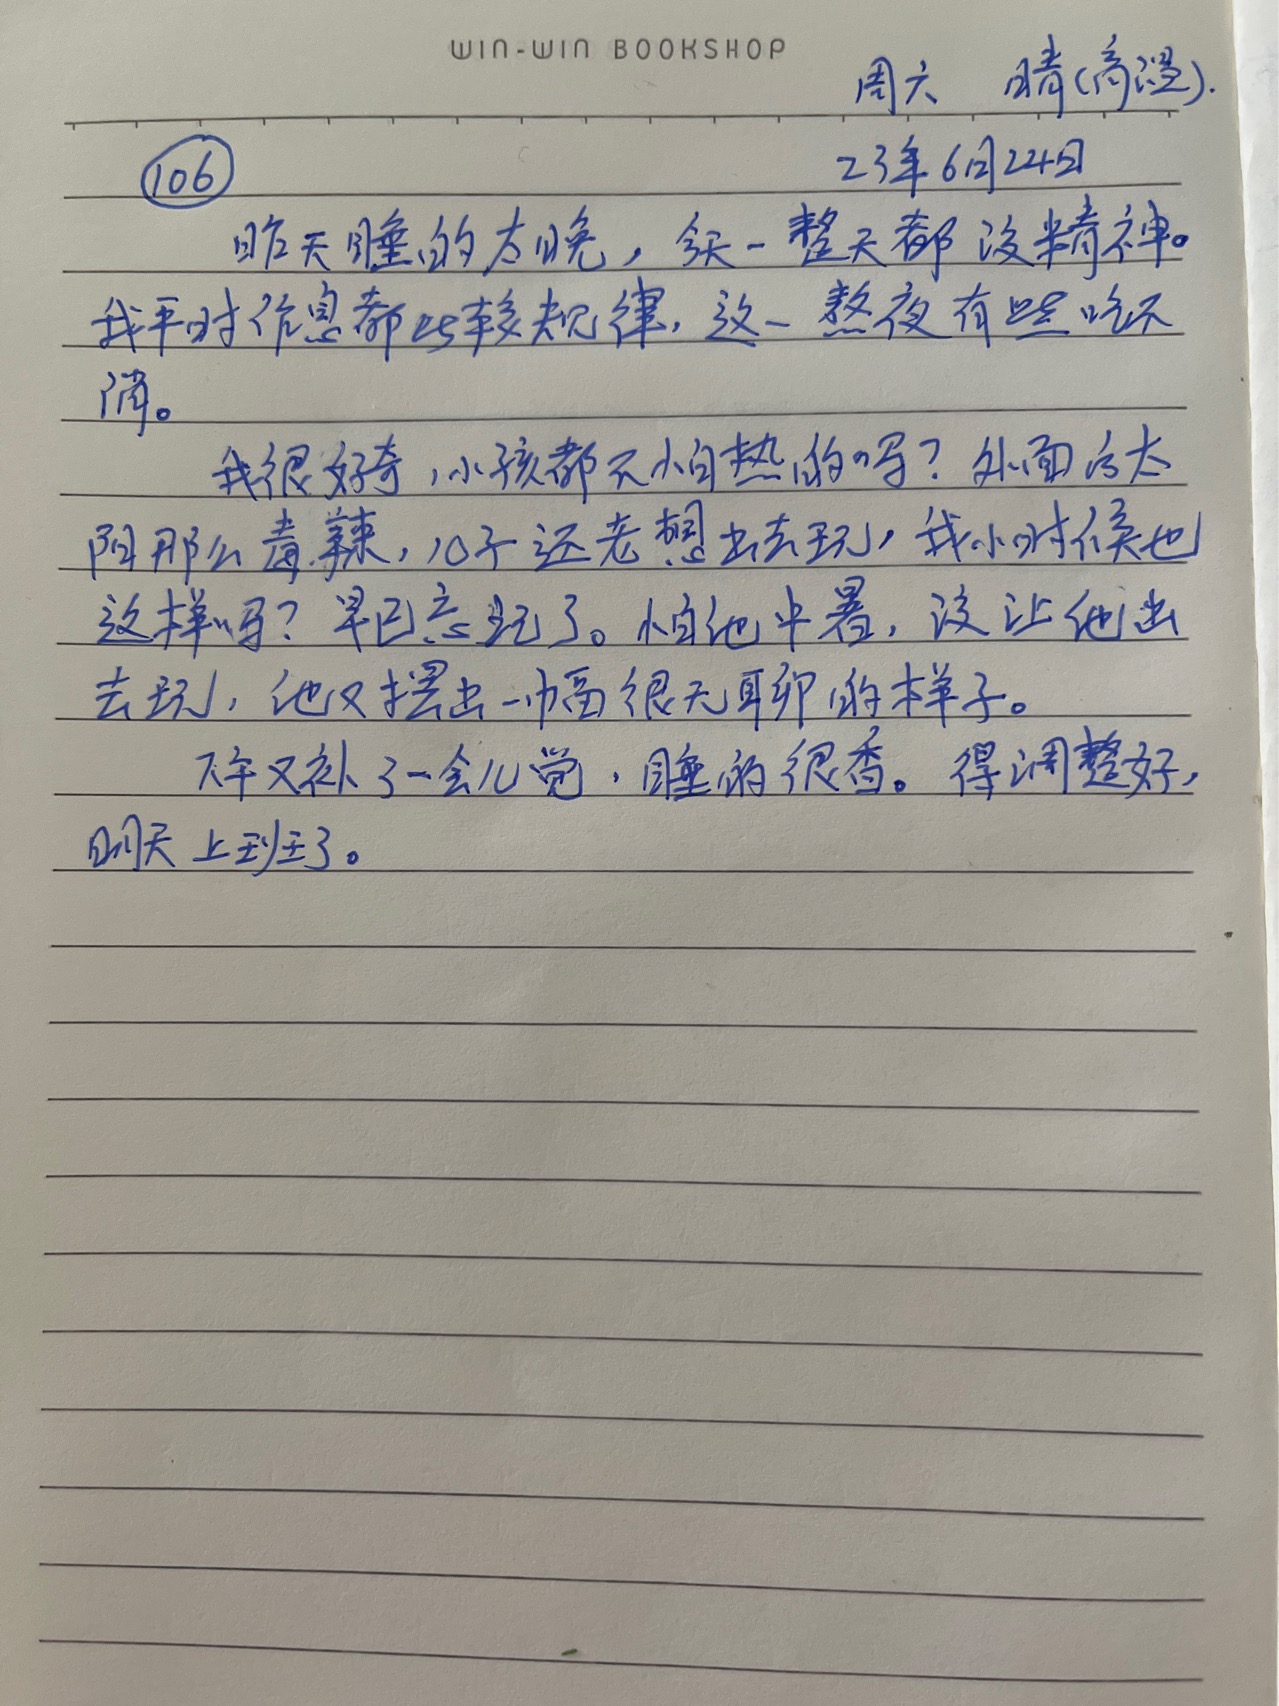 WIN-WIN BOOKSHOP
周六 晴(高温).
106 23年6月24日
昨天睡的太晚，今天一整天都没精神。
我平时作息都比较规律，这一熬夜有些吃不
消。
我很好奇，小孩都不怕热的吗？外面的太
阳那么毒辣，儿子还老想出去玩，我小时候也
这样吗？早已忘玩了。怕他中暑，没让他出
去玩，他又摆出一幅很无聊的样子。
下午又补了一会儿觉，睡的很香。得调整好，
明天上班了。